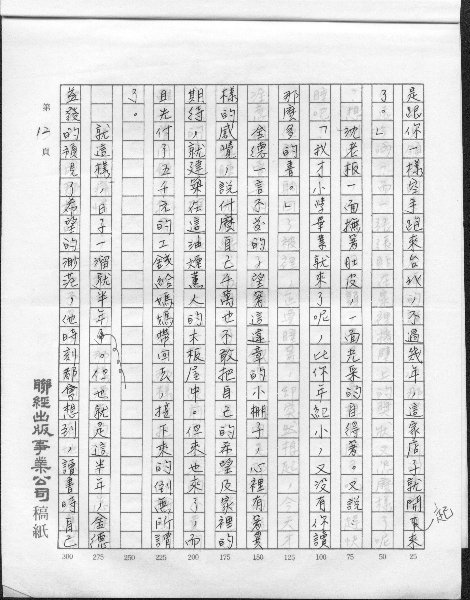 是跟你一樣空手跑來台北，不過幾年，這家店子就開起來
了。」
沈老板一面撫著肚皮，一面光采的自得著。又說：
「我才小學畢業就來了呢，比你年紀小，又沒有你讀
那麼多的書。」
金德一言不發的，望著這違章的小棚子，心裡有著異
樣的感覺，說什麼自己千萬也不敢把自己的希望及家裡的
期待，就建築在這油煙薰人的木板屋中。但來也來了，而
且先付了五千元的工錢給媽媽帶回去，接下來的倒無所謂
了。
就這樣，日子一溜就半年。但也就是這半年，金德
並發的預見了希望的渺茫，他時刻都會想到，讀書時自己
第12頁
聯經出版事業公司稿紙
25
50
75
100
125
150
175
200
225
250
275
300